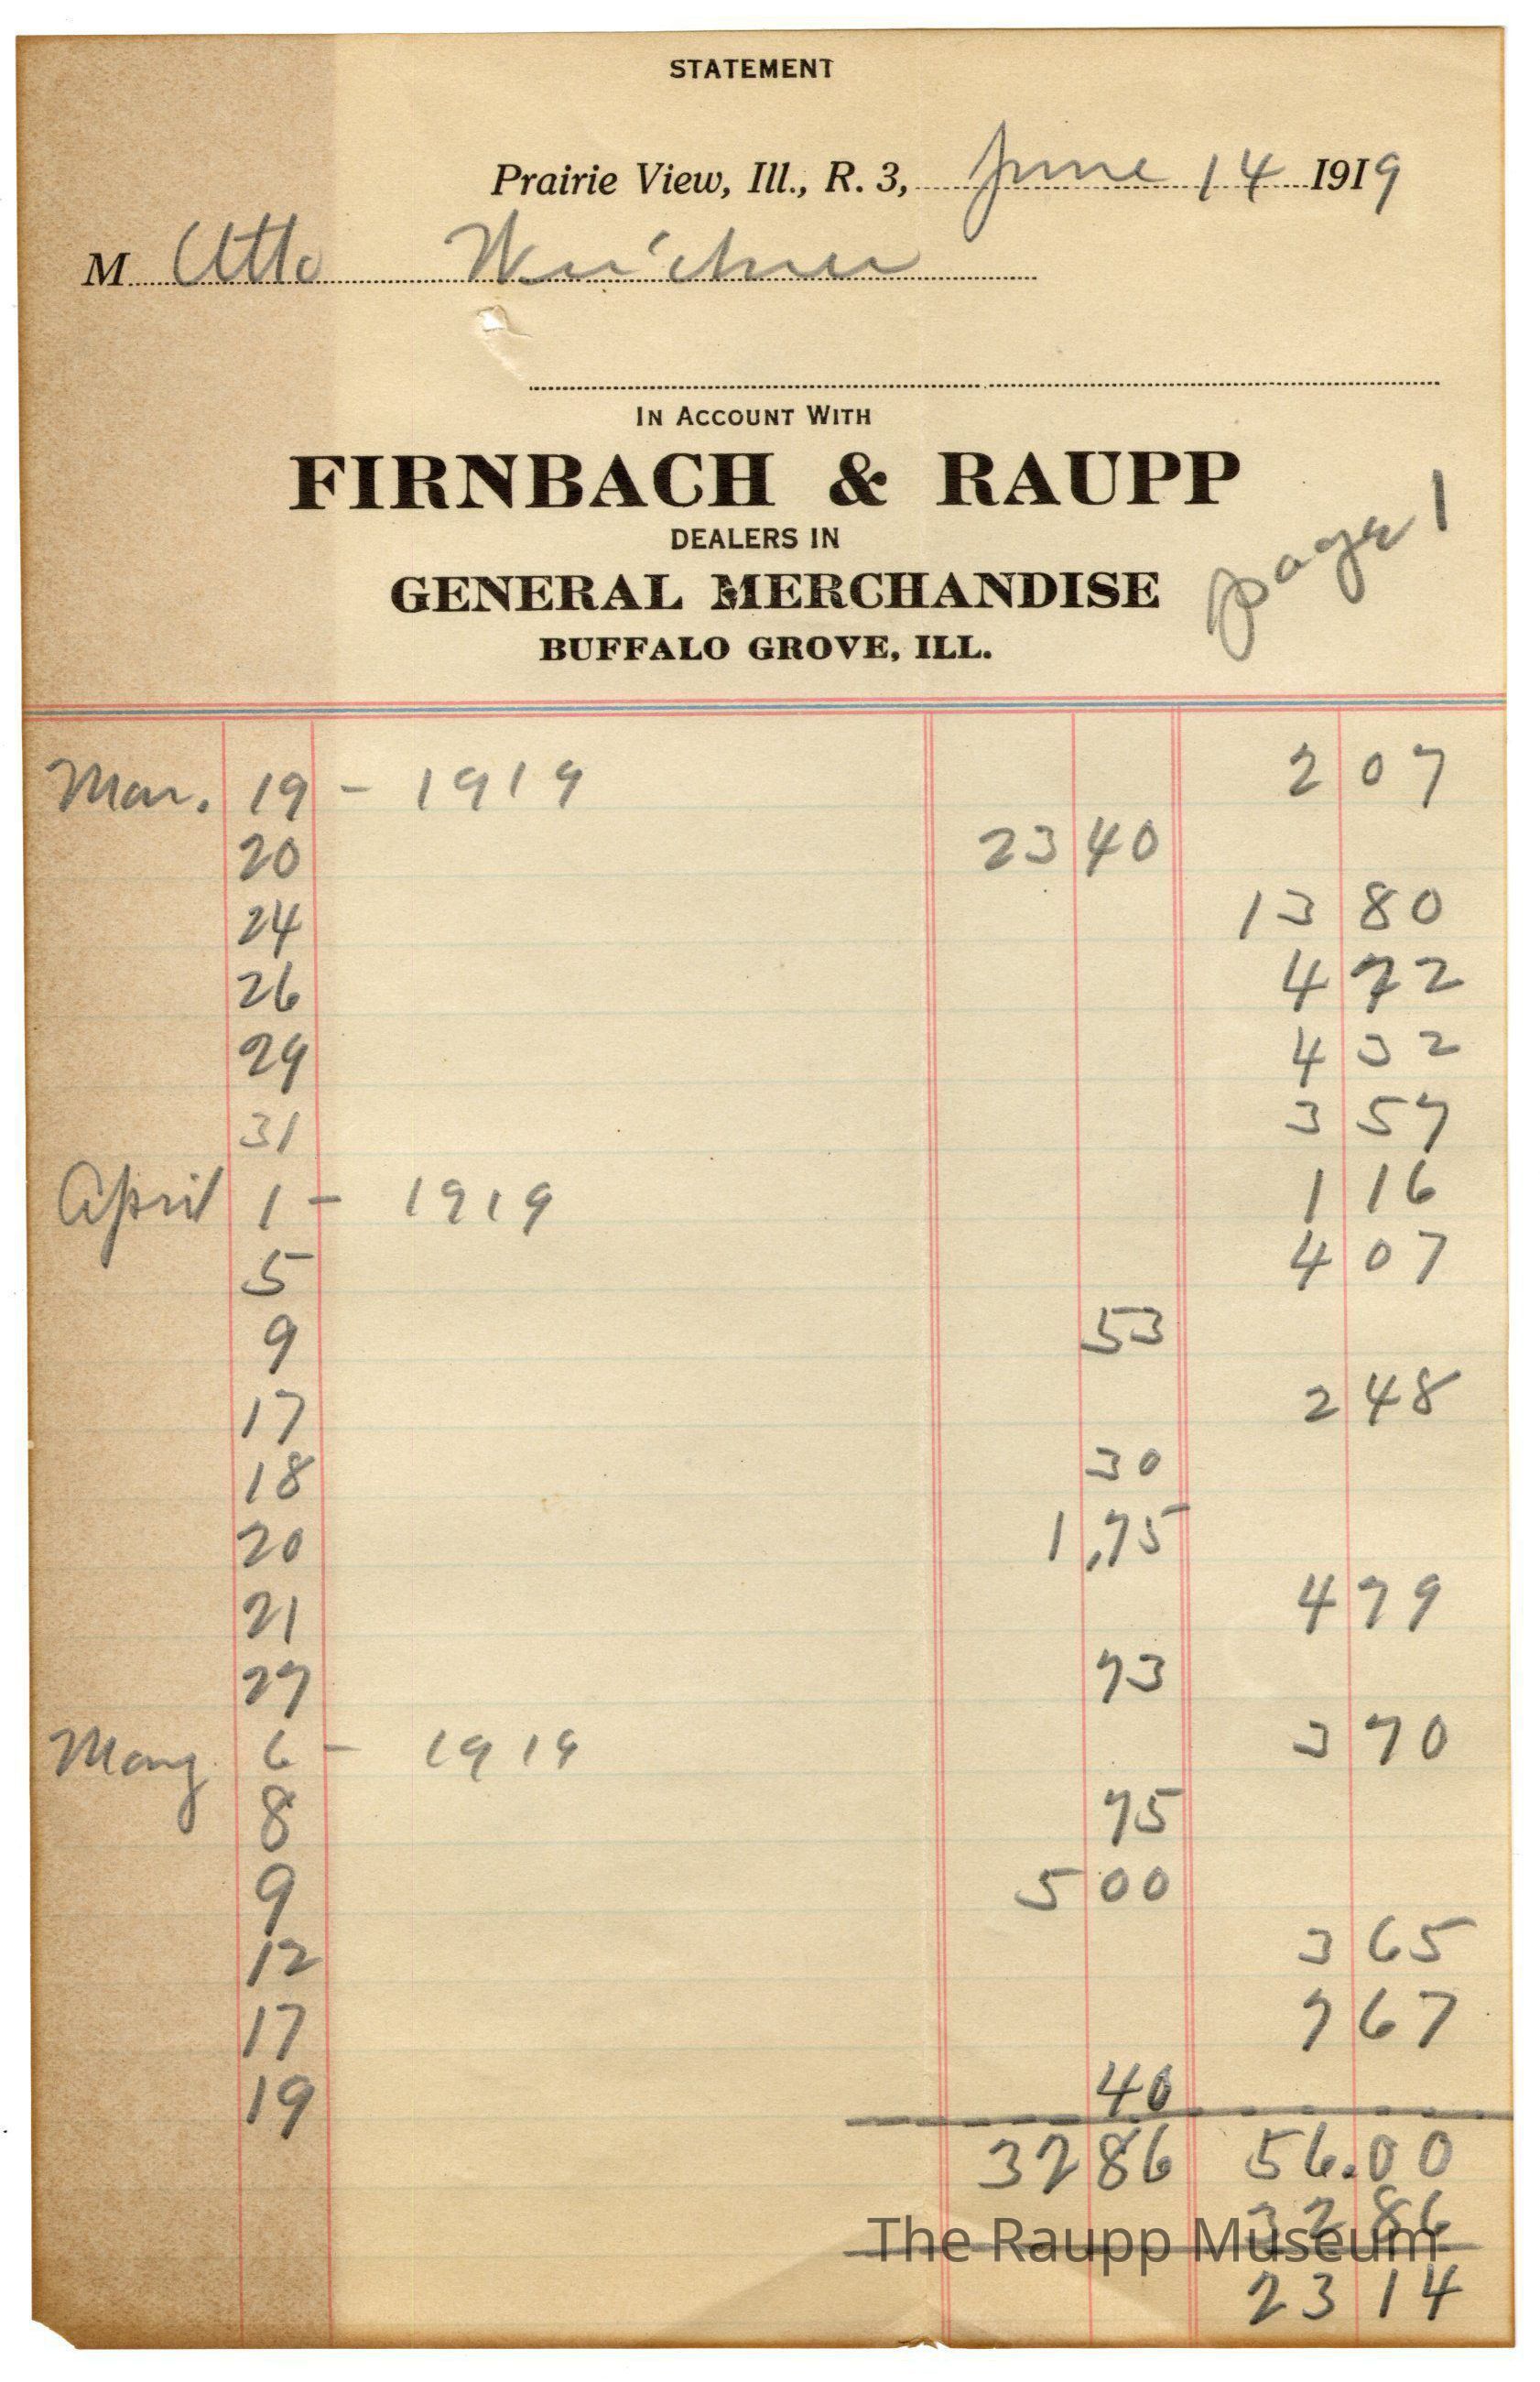 STATEMENT
Prairie View, Ill., R. 3, June 14 1919
M Otto
IN ACCOUNT WITH
FIRNBACH & RAUPP
DEALERS IN
GENERAL MERCHANDISE
BUFFALO GROVE, ILL.
page 1
Mar. 19 - 1919 2 07
20 23 40
24 13 80
26 4 72
29 4 32
31 3 57
April 1 - 1919 1 16
5 4 07
9 53
17 2 48
18 30
20 1,75
21 4 79
27 73
May 6 - 1919 3 70
8 75
9 5 00
12 3 65
17 7 67
19 40
32 86 56.00
32 86
The Raupp Museum
23 14